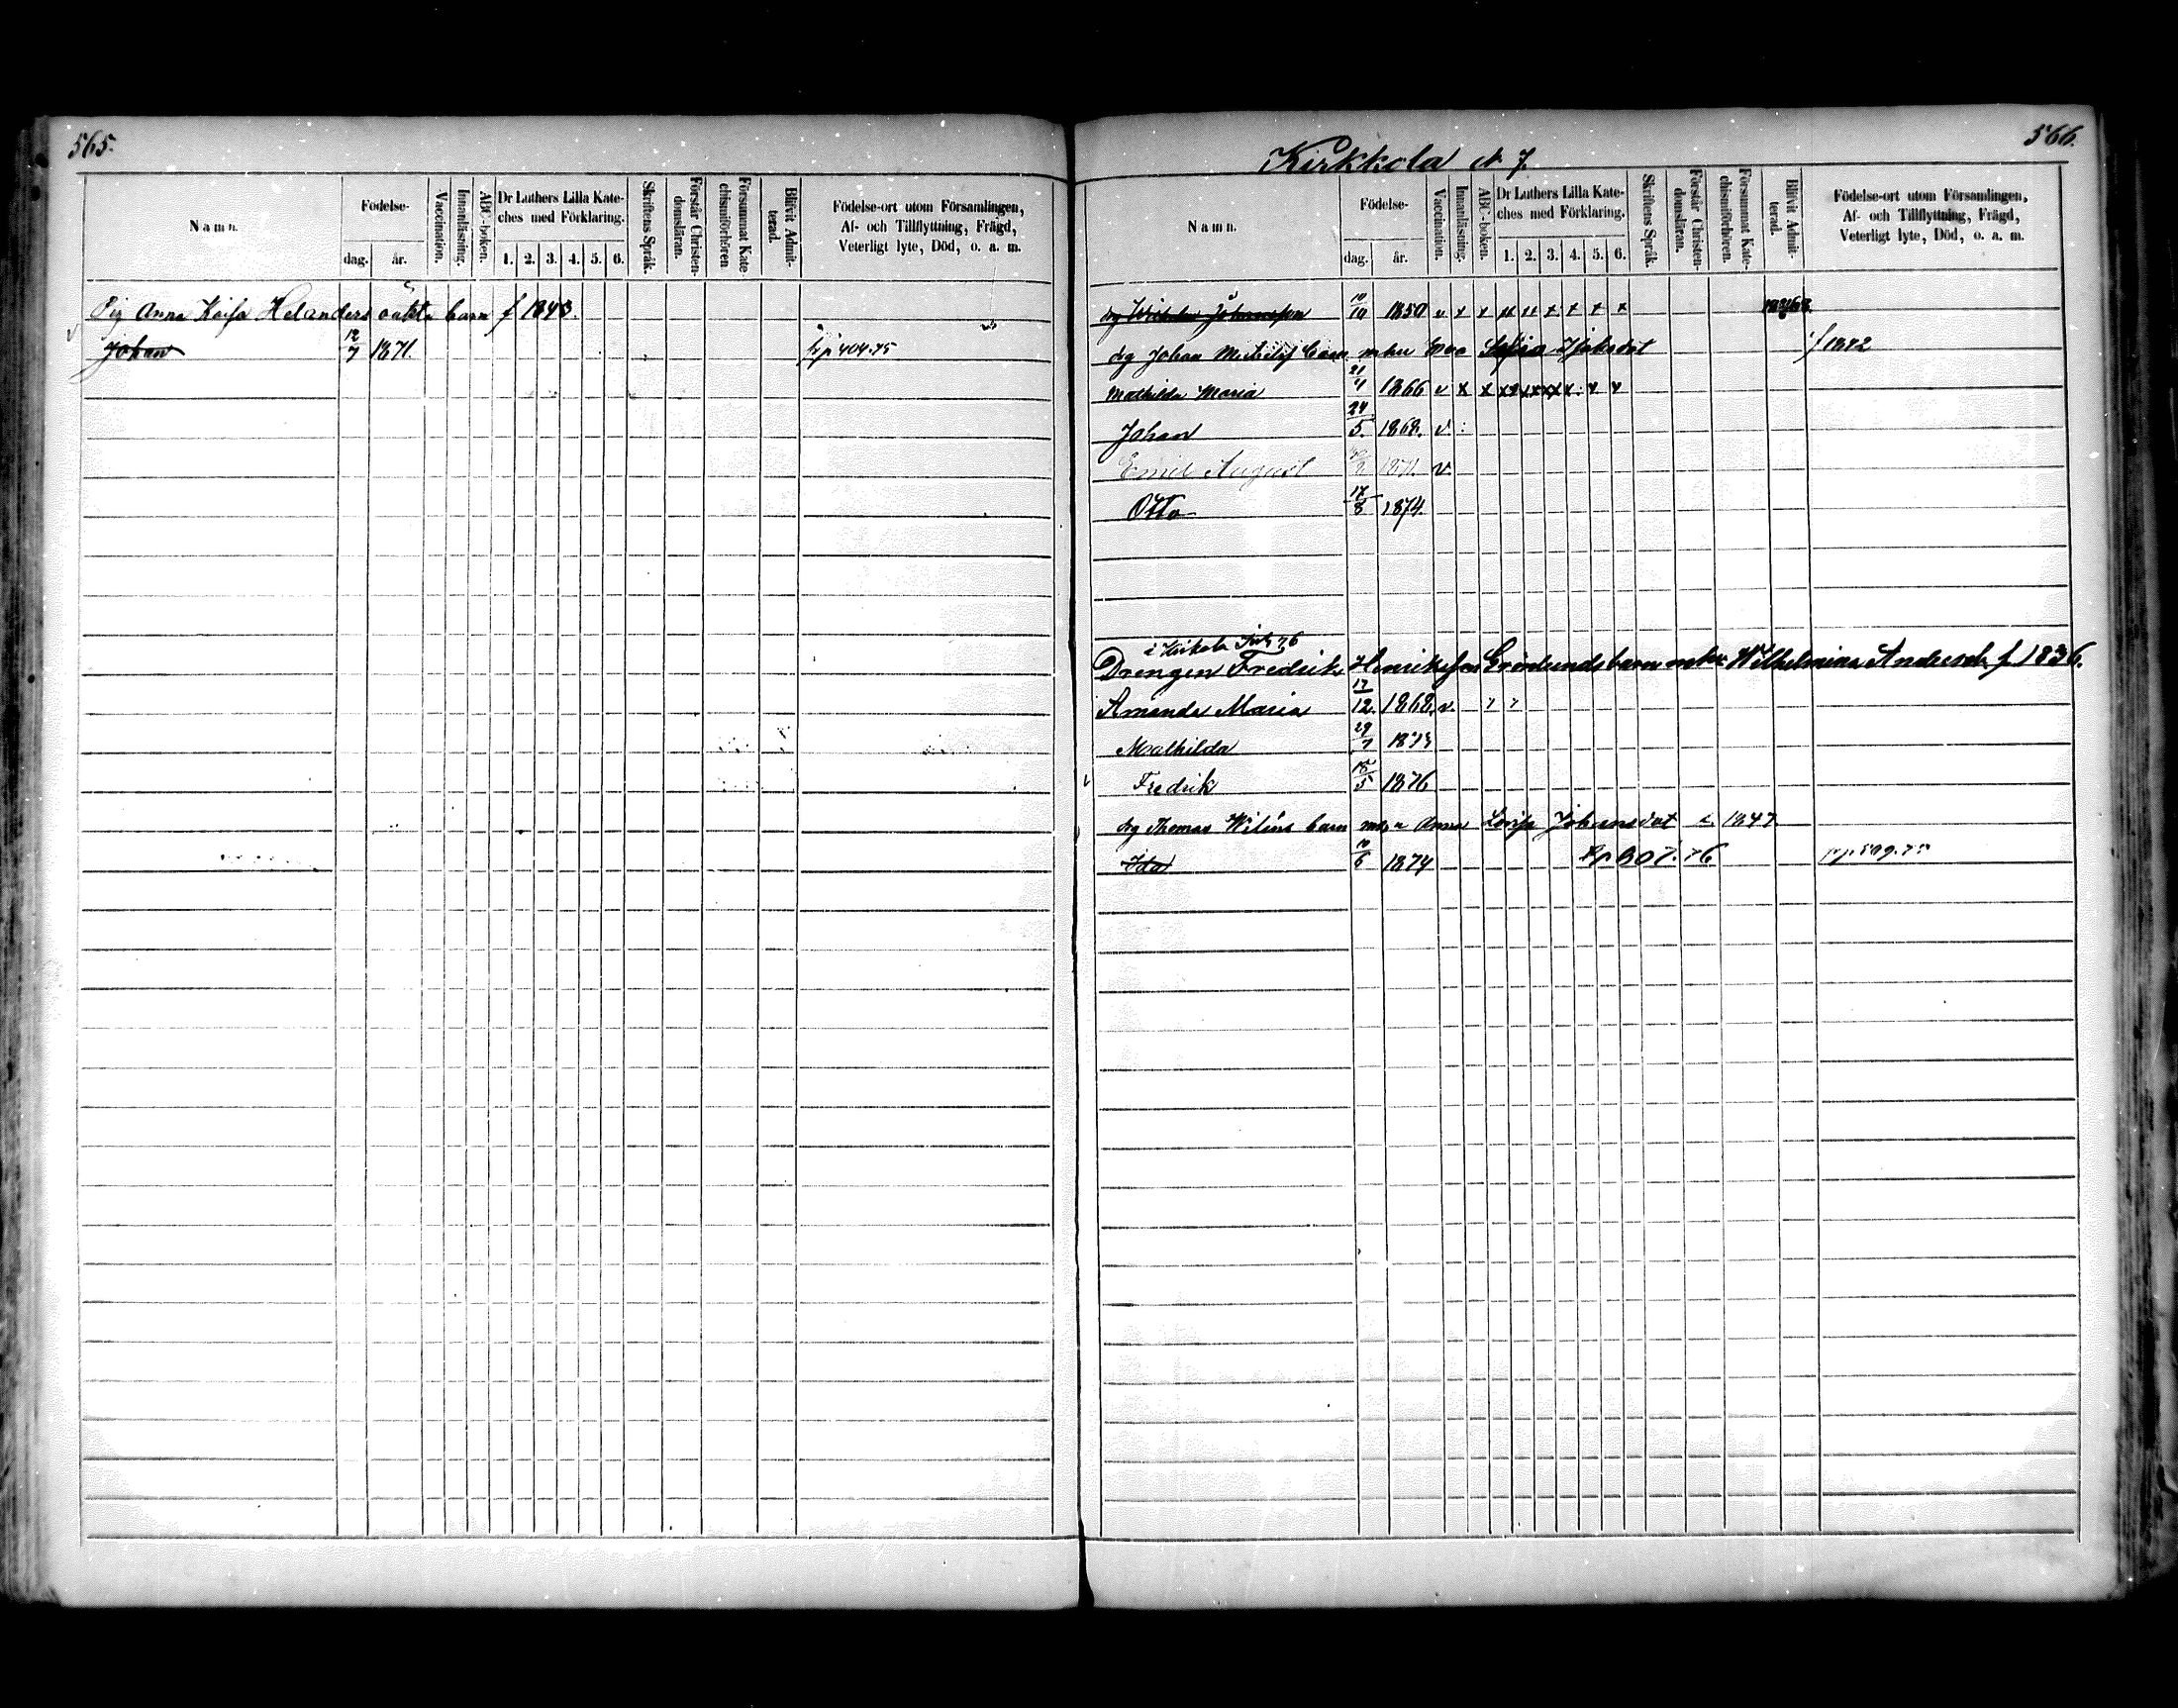 565.
Namn.
Födelse-
dag.
år.
Vaccination.
Innanläsning.
ABC-boken.
Dr Luthers Lilla Kate-
ches med Förklaring.
1. 2. 3. 4. 5. 6.
Skriftens Språk.
Förstår Christen-
domsläran.
Försummat Kate-
chismiförhören
Blifvit Admit-
terad.
Födelse-ort utom Församlingen,
Af- och Tillflyttning, Frägd,
Veterligt lyte, Död, o. a. m.
Pig Anna Kaisa Helanders oäkta barn f 1843.
Johan 12/7 1871. 404.75
566.
Kirkkola N 7.
Namn.
Födelse-
dag.
år.
Vaccination.
Innanläsning.
ABC-boken.
Dr Luthers Lilla Kate-
ches med Förklaring.
1. 2. 3. 4. 5. 6.
Skriftens Språk.
Förstår Christen-
domsläran.
Försummat Kate-
chismiförhören.
Blifvit Admit-
terad.
Födelse-ort utom Församlingen,
Af- och Tillflyttning, Frägd,
Veterligt lyte, Död, o. a. m.
drg Johansson 10/10 1850 v x x x x x x
drg Johan barn Eva Sofia f 1842
Mathilda Maria 21/4 1866 v x x
Johan 24/5. 1868. v
Emil August 1871. v
Otto 17/8 1874.
i Kirkola 76
Drengen Fredrik Henriksson Grönlunds barn Wilhelmina f 1836.
Amanda Maria 17/12. 1868. v.
Mathilda 29/7 1873
Fredrik 18/5 1876
drg Thomas barn Anna Lovisa Johansdot 1847
Ida 10/6 1874 307.76 509.75